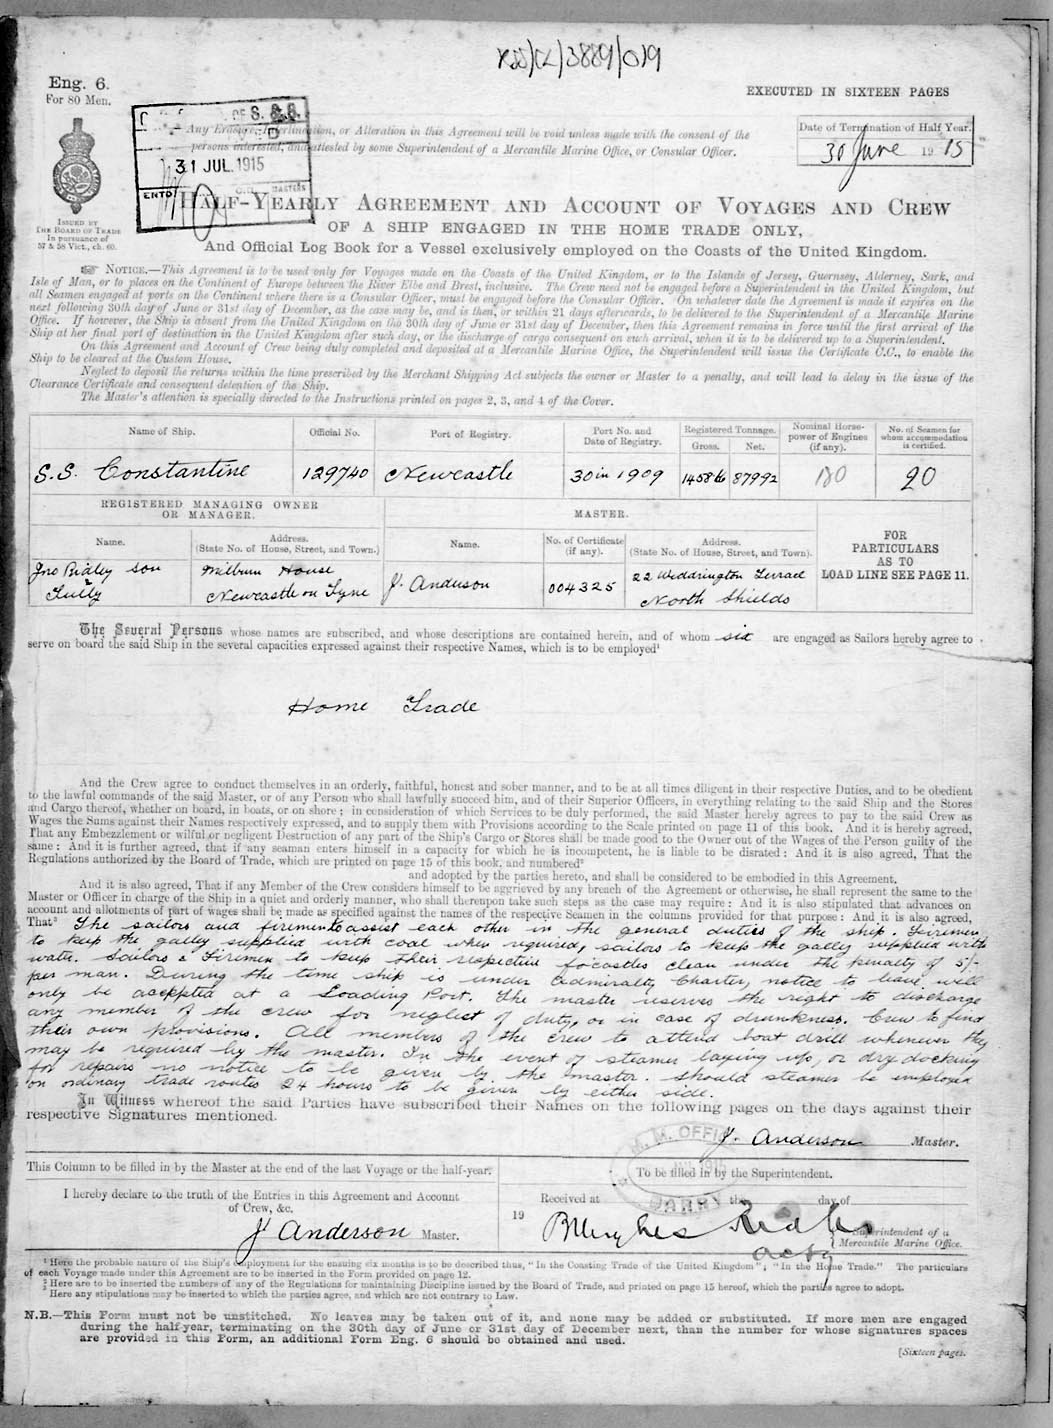 RSS/CL/3889/019
Eng. 6.
For 80 Men.
EXECUTED IN SIXTEEN PAGES
OF S. & S.
31 JUL.1915
ENTD
MASTERS
Any Erasure, Interlineation, or Alteration in this Agreement will be void unless made with the consent of the
persons interested, and attested by some Superintendent of a Mercantile Marine Office, or Consular Officer.
Date of Termination of Half Year.
30 June 1915
ISSUED BY
THE BOARD OF TRADE
In pursuance of
57 & 58 Vict., ch. 60.
HALF-YEARLY AGREEMENT AND ACCOUNT OF VOYAGES AND CREW
OF A SHIP ENGAGED IN THE HOME TRADE ONLY,
And Official Log Book for a Vessel exclusively employed on the Coasts of the United Kingdom.
☞ NOTICE.—This Agreement is to be used only for Voyages made on the Coasts of the United Kingdom, or to the Islands of Jersey, Guernsey, Alderney, Sark, and
Isle of Man, or to places on the Continent of Europe between the River Elbe and Brest, inclusive. The Crew need not be engaged before a Superintendent in the United Kingdom, but
all Seamen engaged at ports on the Continent where there is a Consular Officer, must be engaged before the Consular Officer. On whatever date the Agreement is made it expires on the
next following 30th day of June or 31st day of December, as the case may be, and is then, or within 21 days afterwards, to be delivered to the Superintendent of a Mercantile Marine
Office. If however, the Ship is absent from the United Kingdom on the 30th day of June or 31st day of December, then this Agreement remains in force until the first arrival of the
Ship at her final port of destination in the United Kingdom after such day, or the discharge of cargo consequent on such arrival, when it is to be delivered up to a Superintendent.
On this Agreement and Account of Crew being duly completed and deposited at a Mercantile Marine Office, the Superintendent will issue the Certificate C.C., to enable the
Ship to be cleared at the Custom House.
Neglect to deposit the returns within the time prescribed by the Merchant Shipping Act subjects the owner or Master to a penalty, and will lead to delay in the issue of the
Clearance Certificate and consequent detention of the Ship.
The Master's attention is specially directed to the Instructions printed on pages 2, 3, and 4 of the Cover.
Name of Ship. Official No. Port of Registry. Port No. and Date of Registry. Registered Tonnage. Gross. Net. Nominal Horse-power of Engines (if any). No. of Seamen for whom accommodation is certified.
S.S. Constantine 129740 Newcastle 30 in 1909 87992 180 20
REGISTERED MANAGING OWNER
OR MANAGER.
MASTER.
FOR
PARTICULARS
AS TO
LOAD LINE SEE PAGE 11.
Name. Address. (State No. of House, Street, and Town.) Name. No. of Certificate (if any). Address. (State No. of House, Street, and Town).
Jno Ridley Son & Tully Milburn House Newcastle on Tyne J. Anderson 004325 22 Widdrington Terrace North Shields
The Several Persons whose names are subscribed, and whose descriptions are contained herein, and of whom six are engaged as Sailors hereby agree to
serve on board the said Ship in the several capacities expressed against their respective Names, which is to be employed¹
Home Trade
And the Crew agree to conduct themselves in an orderly, faithful, honest and sober manner, and to be at all times diligent in their respective Duties, and to be obedient
to the lawful commands of the said Master, or of any Person who shall lawfully succeed him, and of their Superior Officers, in everything relating to the said Ship and the Stores
and Cargo thereof, whether on board, in boats, or on shore ; in consideration of which Services to be duly performed, the said Master hereby agrees to pay to the said Crew as
Wages the Sums against their Names respectively expressed, and to supply them with Provisions according to the Scale printed on page 11 of this book. And it is hereby agreed,
That any Embezzlement or wilful or negligent Destruction of any part of the Ship's Cargo or Stores shall be made good to the Owner out of the Wages of the Person guilty of the
same : And it is further agreed, that if any seaman enters himself in a capacity for which he is incompetent, he is liable to be disrated : And it is also agreed, That the
Regulations authorized by the Board of Trade, which are printed on page 15 of this book, and numbered²
and adopted by the parties hereto, and shall be considered to be embodied in this Agreement.
And it is also agreed, That if any Member of the Crew considers himself to be aggrieved by any breach of the Agreement or otherwise, he shall represent the same to the
Master or Officer in charge of the Ship in a quiet and orderly manner, who shall thereupon take such steps as the case may require : And it is also stipulated that advances on
account and allotments of part of wages shall be made as specified against the names of the respective Seamen in the columns provided for that purpose : And it is also agreed,
That³ The sailors and firemen to assist each other in the general duties of the ship. Firemen
to keep the galley supplied with coal when required, sailors to keep the galley supplied with
water. Sailors & Firemen to keep their respective fo'castles clean under the penalty of 5/-
per man. During the time ship is under Admiralty Charter, notice to leave will
only be accepted at a Loading Port. The master reserves the right to discharge
any member of the crew for neglect of duty, or in case of drunkness. Crew to find
their own provisions. All members of the crew to attend boat drill whenever they
may be required by the master. In the event of steamer laying up, or dry docking
for repairs no notice to be given by the master. Should steamer be employed
on ordinary trade routes 24 hours to be given by either side.
In Witness whereof the said Parties have subscribed their Names on the following pages on the days against their
respective Signatures mentioned.
J. Anderson Master.
M. M. OFFICE
1915
BARRY
This Column to be filled in by the Master at the end of the last Voyage or the half-year.
To be filled in by the Superintendent.
I hereby declare to the truth of the Entries in this Agreement and Account
of Crew, &c.
J. Anderson Master.
Received at the day of
19
Superintendent of a
Mercantile Marine Office.
actg
¹ Here the probable nature of the Ship's employment for the ensuing six months is to be described thus, "In the Coasting Trade of the United Kingdom" ; "In the Home Trade." The particulars
of each Voyage made under this Agreement are to be inserted in the Form provided on page 12.
² Here are to be inserted the numbers of any of the Regulations for maintaining Discipline issued by the Board of Trade, and printed on page 15 hereof, which the parties agree to adopt.
³ Here any stipulations may be inserted to which the parties agree, and which are not contrary to Law.
N.B.—This Form must not be unstitched. No leaves may be taken out of it, and none may be added or substituted. If more men are engaged
during the half-year, terminating on the 30th day of June or 31st day of December next, than the number for whose signatures spaces
are provided in this Form, an additional Form Eng. 6 should be obtained and used.
[Sixteen pages.